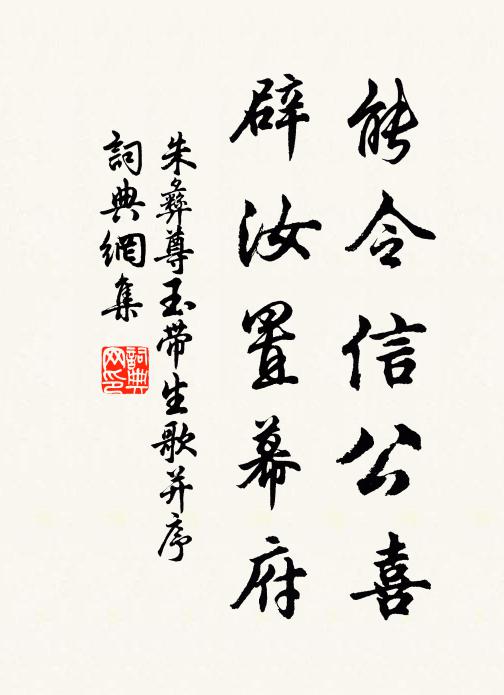 能令信公喜
辟汝置幕府
朱彝尊玉带生歌并序
詞典網集
詞典网印